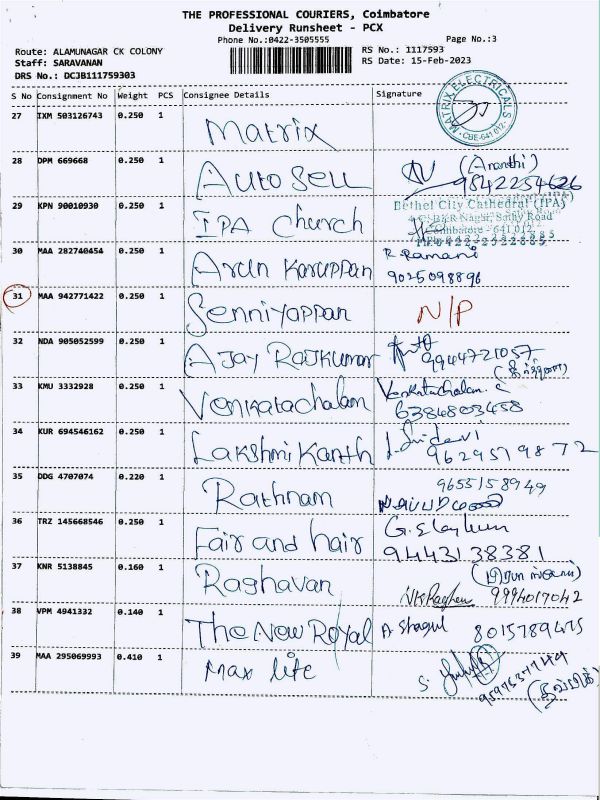 THE PROFESSIONAL COURIERS, Coimbatore
Delivery Runsheet - PCX
Phone No.:0422-3505555 Page No.:3
Route: ALAMUNAGAR CK COLONY RS No.: 1117593
Staff: SARAVANAN RS Date: 15-Feb-2023
DRS No.: DCJB111759303
S No Consignment No Weight PCS Consignee Details Signature
MATRIX ELECTRICALS
CBE-641 012
27 IXM 503126743 0.250 1 Matrix
28 DPM 669668 0.250 1 Auto Sell (Ananthi)
9842254626
29 KPN 90010930 0.250 1 IPA Church
Bethel City Cathedral (IPA)
Nagar, Sathy Road
Coimbatore - 641 012
30 MAA 282740454 0.250 1 Arun Karuppan R Ramani
9025098896
31 MAA 942771422 0.250 1 Senniyappan N/P
32 NDA 905052599 0.250 1 Ajay Rajkumar 9944721057
33 KMU 3332928 0.250 1 Venkatachalam Venkatachalam. c
6384803458
34 KUR 694546162 0.250 1 Lakshmi Kanth J. Sridevi
9629579872
35 DDG 4707074 0.220 1 Rathnam 9655158949
36 TRZ 145668546 0.250 1 Fair and hair
9443138381
37 KNR 5138845 0.160 1 Raghavan
9994017042
38 VPM 4941332 0.140 1 The New Royal A Shagul 8015789475
39 MAA 295069993 0.410 1 Max life